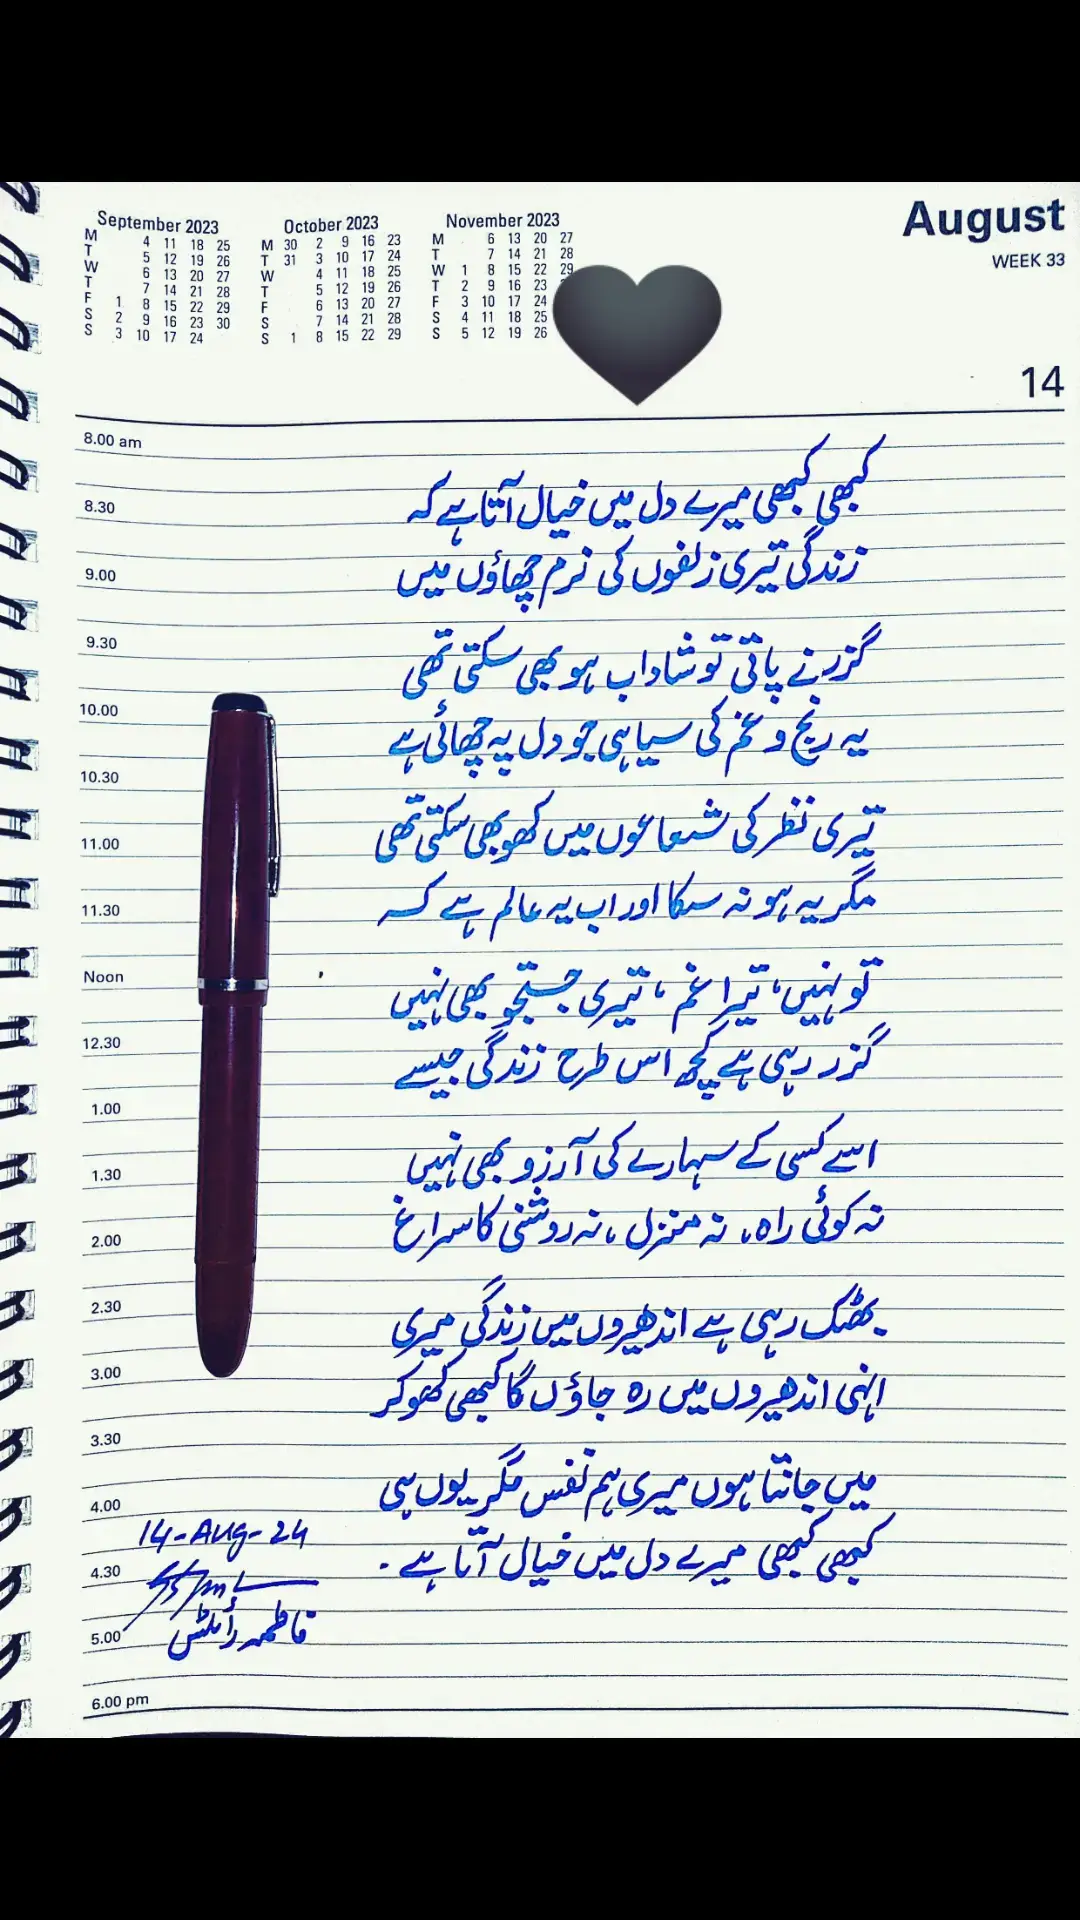 September 2023
M 4 11 18 25
T 5 12 19 26
W 6 13 20 27
T 7 14 21 28
F 1 8 15 22 29
S 2 9 16 23 30
S 3 10 17 24
October 2023
M 30 2 9 16 23
T 31 3 10 17 24
W 4 11 18 25
T 5 12 19 26
F 6 13 20 27
S 7 14 21 28
S 1 8 15 22 29
November 2023
M 6 13 20 27
T 7 14 21 28
W 1 8 15 22 29
T 2 9 16 23
F 3 10 17 24
S 4 11 18 25
S 5 12 19 26
August
WEEK 33
14
8.00 am
کبھی کبھی میرے دل میں خیال آتا ہے کہ
8.30
زندگی تیری زلفوں کی نرم چھاؤں میں
9.00
9.30
گزرنے پاتی تو شاداب ہو بھی سکتی تھی
10.00
یہ رنج و غم کی سیاہی جو دل پہ چھائی ہے
10.30
تیری نظر کی شعاعوں میں کھو بھی سکتی تھی
11.00
مگر یہ ہو نہ سکا اور اب یہ عالم ہے کہ
11.30
Noon
تو نہیں، تیرا غم، تیری جستجو بھی نہیں
12.30
گزر رہی ہے کچھ اس طرح زندگی جیسے
1.00
اسے کسی کے سہارے کی آرزو بھی نہیں
1.30
نہ کوئی راہ، نہ منزل، نہ روشنی کا سراغ
2.00
2.30
بھٹک رہی ہے اندھیروں میں زندگی میری
3.00
انہی اندھیروں میں رہ جاؤں گا کبھی کھو کر
3.30
میں جانتا ہوں میری ہم نفس مگر یوں ہی
4.00
14-Aug-24
کبھی کبھی میرے دل میں خیال آتا ہے.
4.30
فاطمہ رائٹس
5.00
6.00 pm